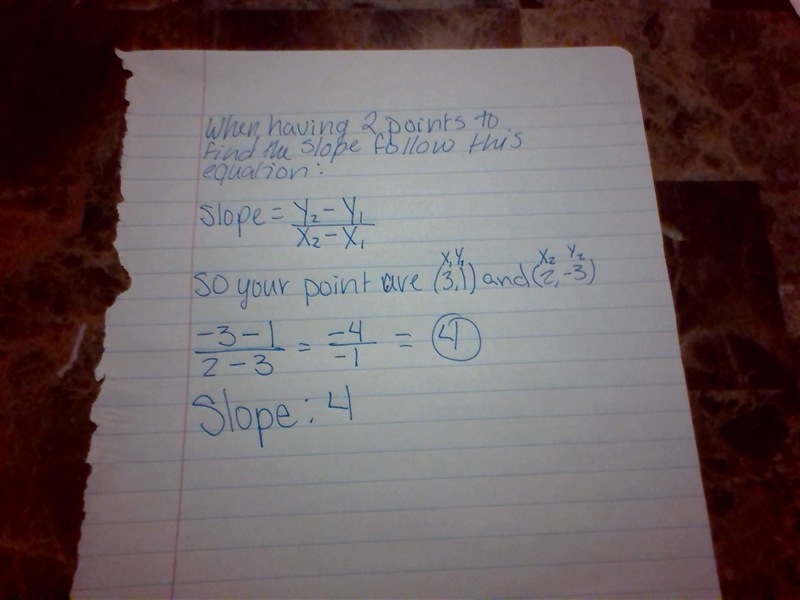 When having 2 points to
find the slope follow this
equation:
Slope = Y₂ - Y₁
X₂ - X₁
X₁ Y₁ X₂ Y₂
So your point are (3,1) and (2,-3)
-3-1 = -4 = 4
2-3 -1
Slope: 4